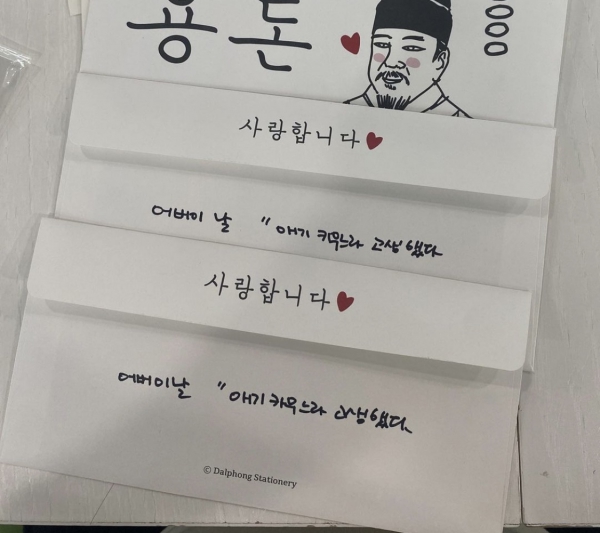 용돈
사랑합니다
어버이 날 " 애기 키우느라 고생했다
사랑합니다
어버이날 " 애기 키우느라 고생했다.
© Dalphong Stationery